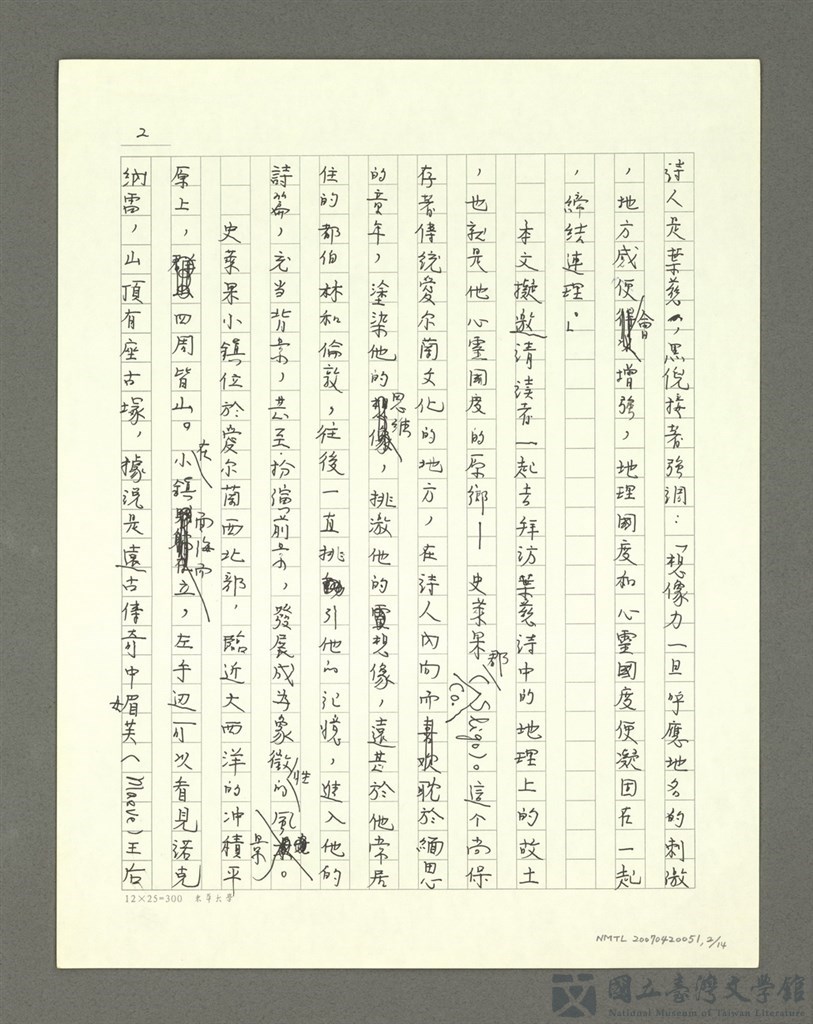 2
詩人是葉慈，黑倪接著強調：「想像力一旦呼應地名的刺激
，地方感便會增強，地理國度和心靈國度便凝固在一起
，締結連理。」
本文擬邀請讀者一起去拜訪葉慈詩中的地理上的故土
，也就是他心靈國度的原鄉—史萊果郡(Co. Sligo)。這个尚保
存著傳統愛尔蘭文化的地方，在詩人內向而耽於緬思
的童年，塗染他的思維，挑激他的想像，遠甚於他常居
住的都伯林和倫敦，往後一直挑引他的記憶，進入他的
詩篇，充当背景，甚至扮演前景，發展成为象徵性的風景。
史萊果小鎮位於愛尔蘭西北部，臨近大西洋的冲積平
原上，四周皆山。在小鎮面海而立，左手辺可以看見諾克
納雷，山頂有座古塚，據說是遠古傳奇中媚芙(Maeve)王后
12×25=300 東華大學
NMTL 20070420051, 2/14
國立臺灣文學館
National Museum of Taiwan Literature